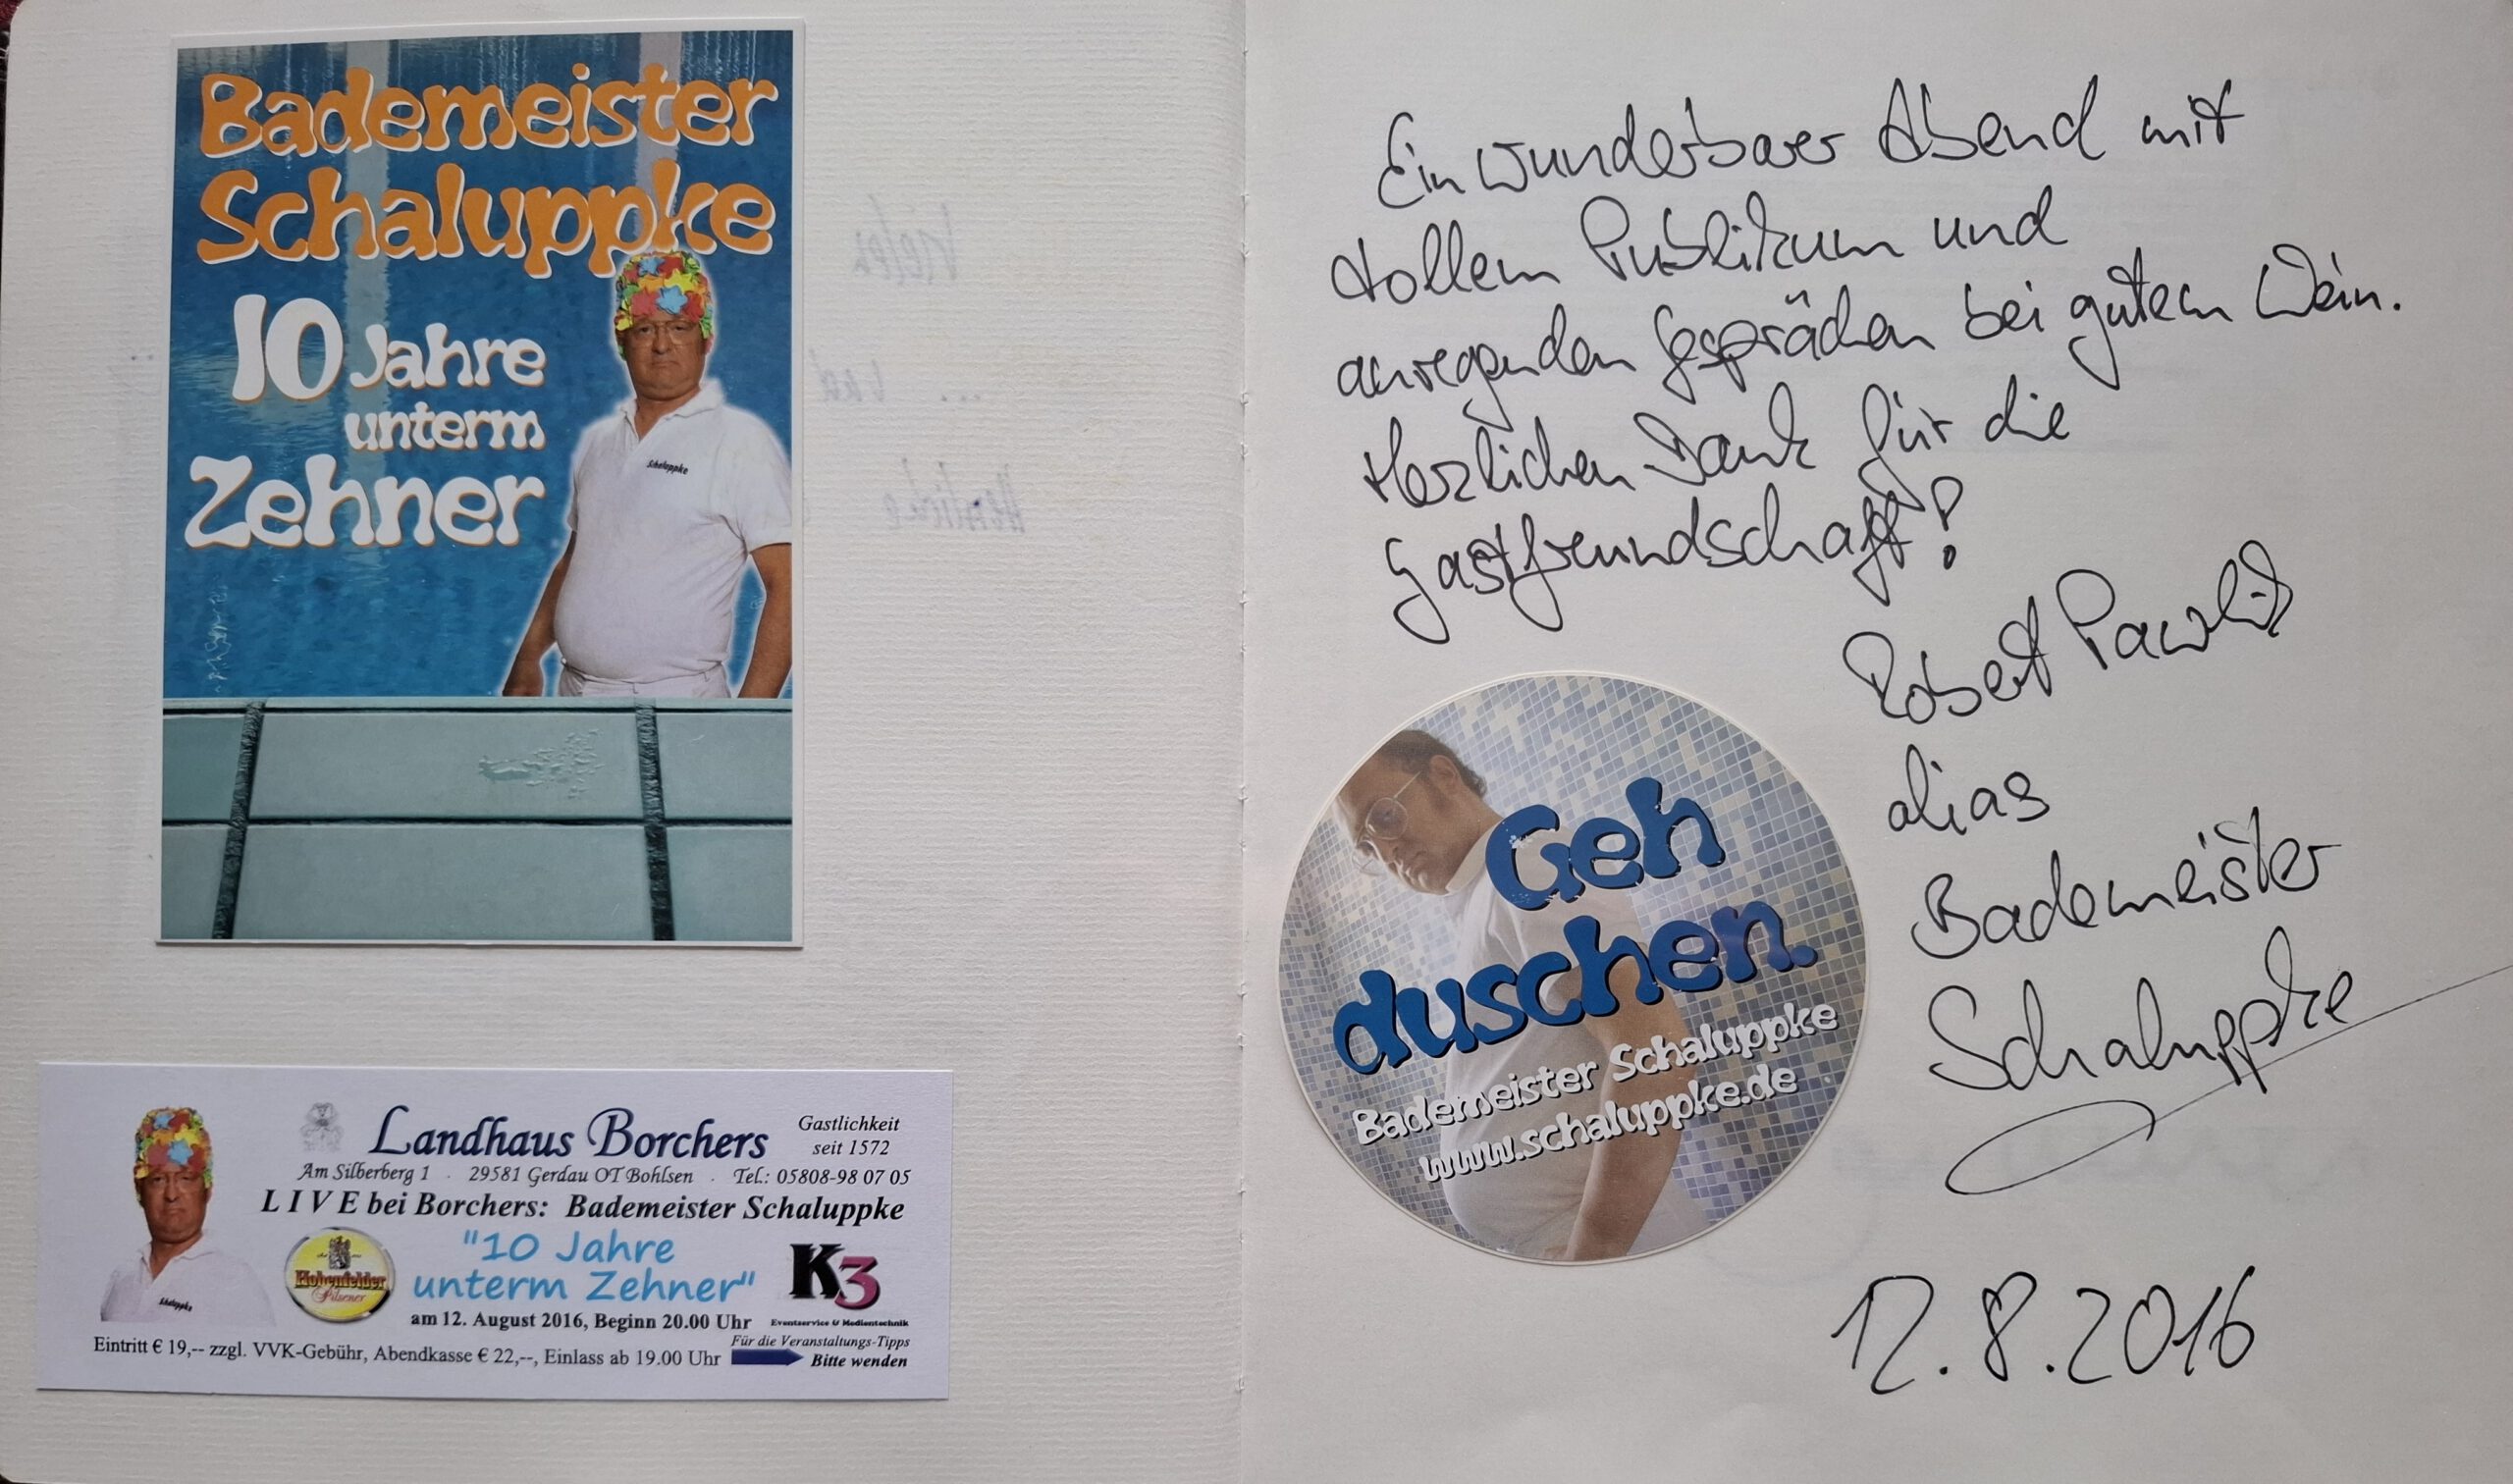 Bademeister
Schaluppke
10 Jahre
unterm
Zehner
Schaluppke
Landhaus Borchers
Gastlichkeit
seit 1572
Am Silberberg 1 . 29581 Gerdau OT Bohlsen . Tel.: 05808-98 07 05
L I V E bei Borchers: Bademeister Schaluppke
Hohenfelder
Pilsener
"10 Jahre
unterm Zehner"
K3
Eventservice & Medientechnik
am 12. August 2016, Beginn 20.00 Uhr
Eintritt € 19,-- zzgl. VVK-Gebühr, Abendkasse € 22,--, Einlass ab 19.00 Uhr
Für die Veranstaltungs-Tipps
Bitte wenden
Schaluppke
Ein wunderbarer Abend mit
tollem Publikum und
anregenden Gesprächen bei gutem Wein.
Herzlichen Dank für die
Gastfreundschaft!
Robert Pawlik
alias
Bademeister
Schaluppke
12.8.2016
Geh
duschen.
Bademeister Schaluppke
www.schaluppke.de